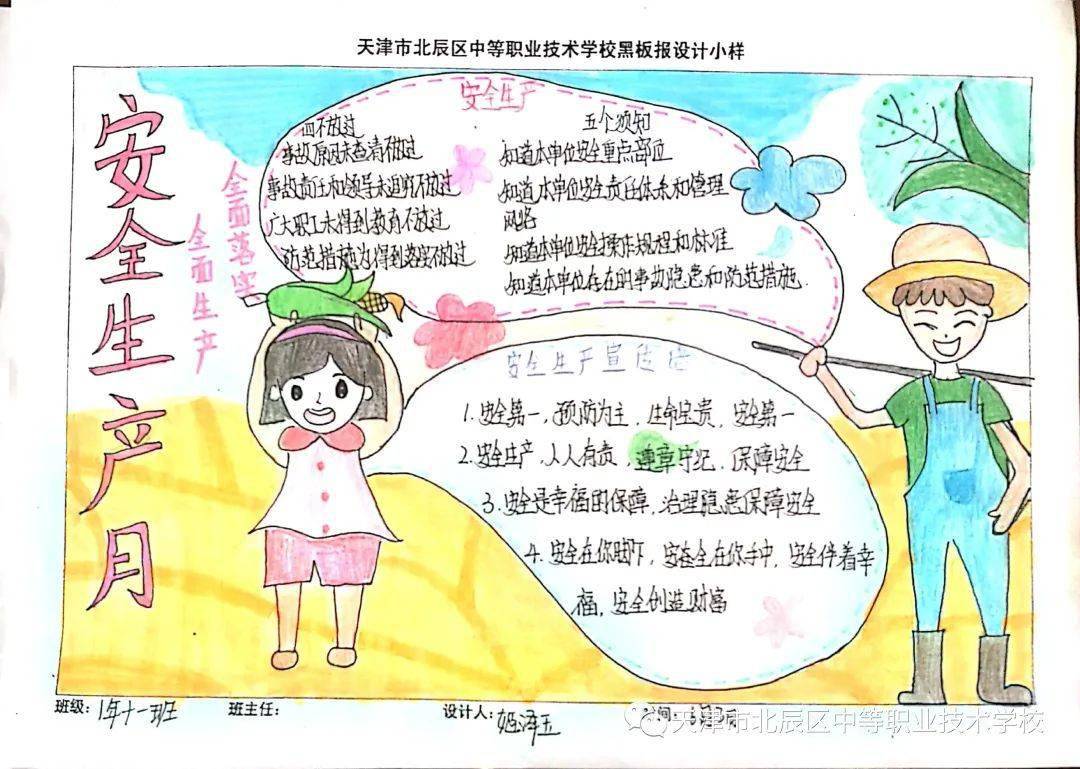 天津市北辰区中等职业技术学校黑板报设计小样
安全生产月
全面落实
全面生产
安全生产
四不放过
事故原因未查清不放过
事故责任和领导未追究不放过
广大职工未得到教育不放过
防范措施为得到落实不放过
五个须知
知道本单位安全重点部位
知道本单位安全责任体系和管理
网络
知道本单位安全操作规程和标准
知道本单位存在的事故隐患和防范措施.
安全生产宣传语
1.安全第一,预防为主,生命宝贵,安全第一
2.安全生产,人人有责,遵章守纪,保障安全
3.安全是幸福的保障,治理隐患保障安全
4.安全在你脚下,安全在你手中,安全伴着幸
福,安全创造财富
班级:1年十一班 班主任: 设计人:姬泽玉 时间:6月3日
天津市北辰区中等职业技术学校